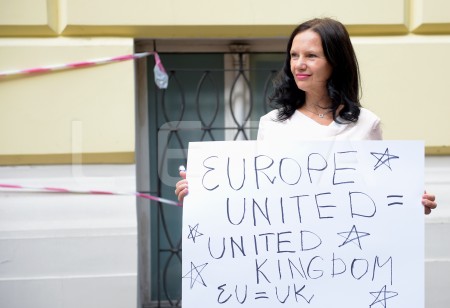 EUROPE
UNITED =
UNITED
KINGDOM
EU = UK